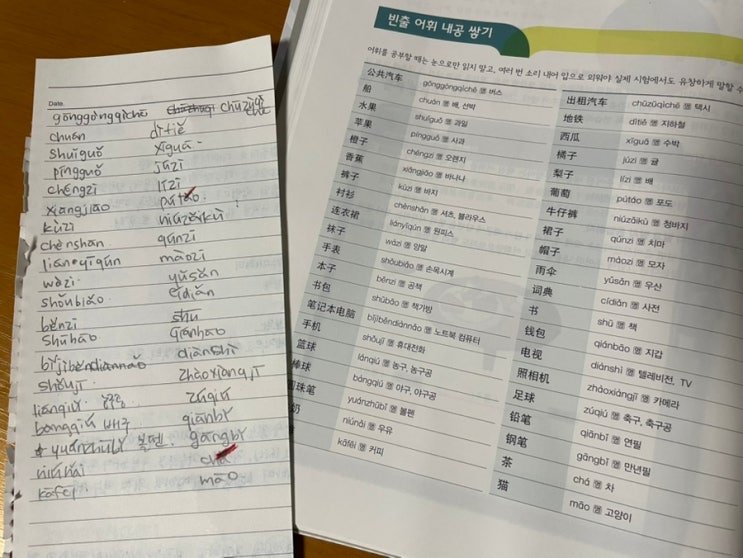 Date.
gōnggòngqìchē chūzūqì
chē
chuán dìtiě
shuǐguǒ xīguā
píngguǒ júzi
chéngzi lízi
xiāngjiāo pútáo
kùzi niúzǎikù
chènshān qúnzi
liányīqún màozi
wàzi yǔsǎn
shǒubiǎo cídiǎn
běnzi shū
shūbāo qiánbāo
bǐjìběndiànnǎo diànshì
shǒujī zhàoxiàngjī
lánqiú 농구 zúqiú
bàngqiú 야구 qiānbǐ
yuánzhūbǐ 볼펜 gāngbǐ
niúnǎi chá
kāfēi māo
빈출 어휘 내공 쌓기
어휘를 공부할 때는 눈으로만 읽지 말고, 여러 번 소리 내어 입으로 외워야 실제 시험에서도 유창하게 말할 수
公共汽车 gōnggòngqìchē 명 버스
船 chuán 명 배, 선박
水果 shuǐguǒ 명 과일
苹果 píngguǒ 명 사과
橙子 chéngzi 명 오렌지
香蕉 xiāngjiāo 명 바나나
裤子 kùzi 명 바지
衬衫 chènshān 명 셔츠, 블라우스
连衣裙 liányīqún 명 원피스
袜子 wàzi 명 양말
手表 shǒubiǎo 명 손목시계
本子 běnzi 명 공책
书包 shūbāo 명 책가방
笔记本电脑 bǐjìběndiànnǎo 명 노트북 컴퓨터
手机 shǒujī 명 휴대전화
篮球 lánqiú 명 농구, 농구공
棒球 bàngqiú 명 야구, 야구공
珠笔 yuánzhūbǐ 명 볼펜
奶 niúnǎi 명 우유
kāfēi 명 커피
出租汽车 chūzūqìchē 명 택시
地铁 dìtiě 명 지하철
西瓜 xīguā 명 수박
橘子 júzi 명 귤
梨子 lízi 명 배
葡萄 pútáo 명 포도
牛仔裤 niúzǎikù 명 청바지
裙子 qúnzi 명 치마
帽子 màozi 명 모자
雨伞 yǔsǎn 명 우산
词典 cídiǎn 명 사전
书 shū 명 책
钱包 qiánbāo 명 지갑
电视 diànshì 명 텔레비전, TV
照相机 zhàoxiàngjī 명 카메라
足球 zúqiú 명 축구, 축구공
铅笔 qiānbǐ 명 연필
钢笔 gāngbǐ 명 만년필
茶 chá 명 차
猫 māo 명 고양이